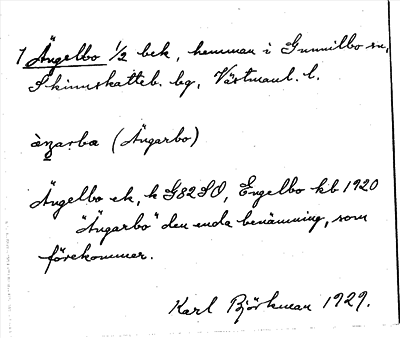 1 Ängelbo ½ bek, hemman i Gunnilbo sn,
Skinnskatteb. bg, Västmanl. l.
àŋarba (Ängarbo)
Ängelbo ek, k G82SO, Engelbo kb 1920
"Ängarbo" den enda benämning, som
förekommer.
Karl Björkman 1929.